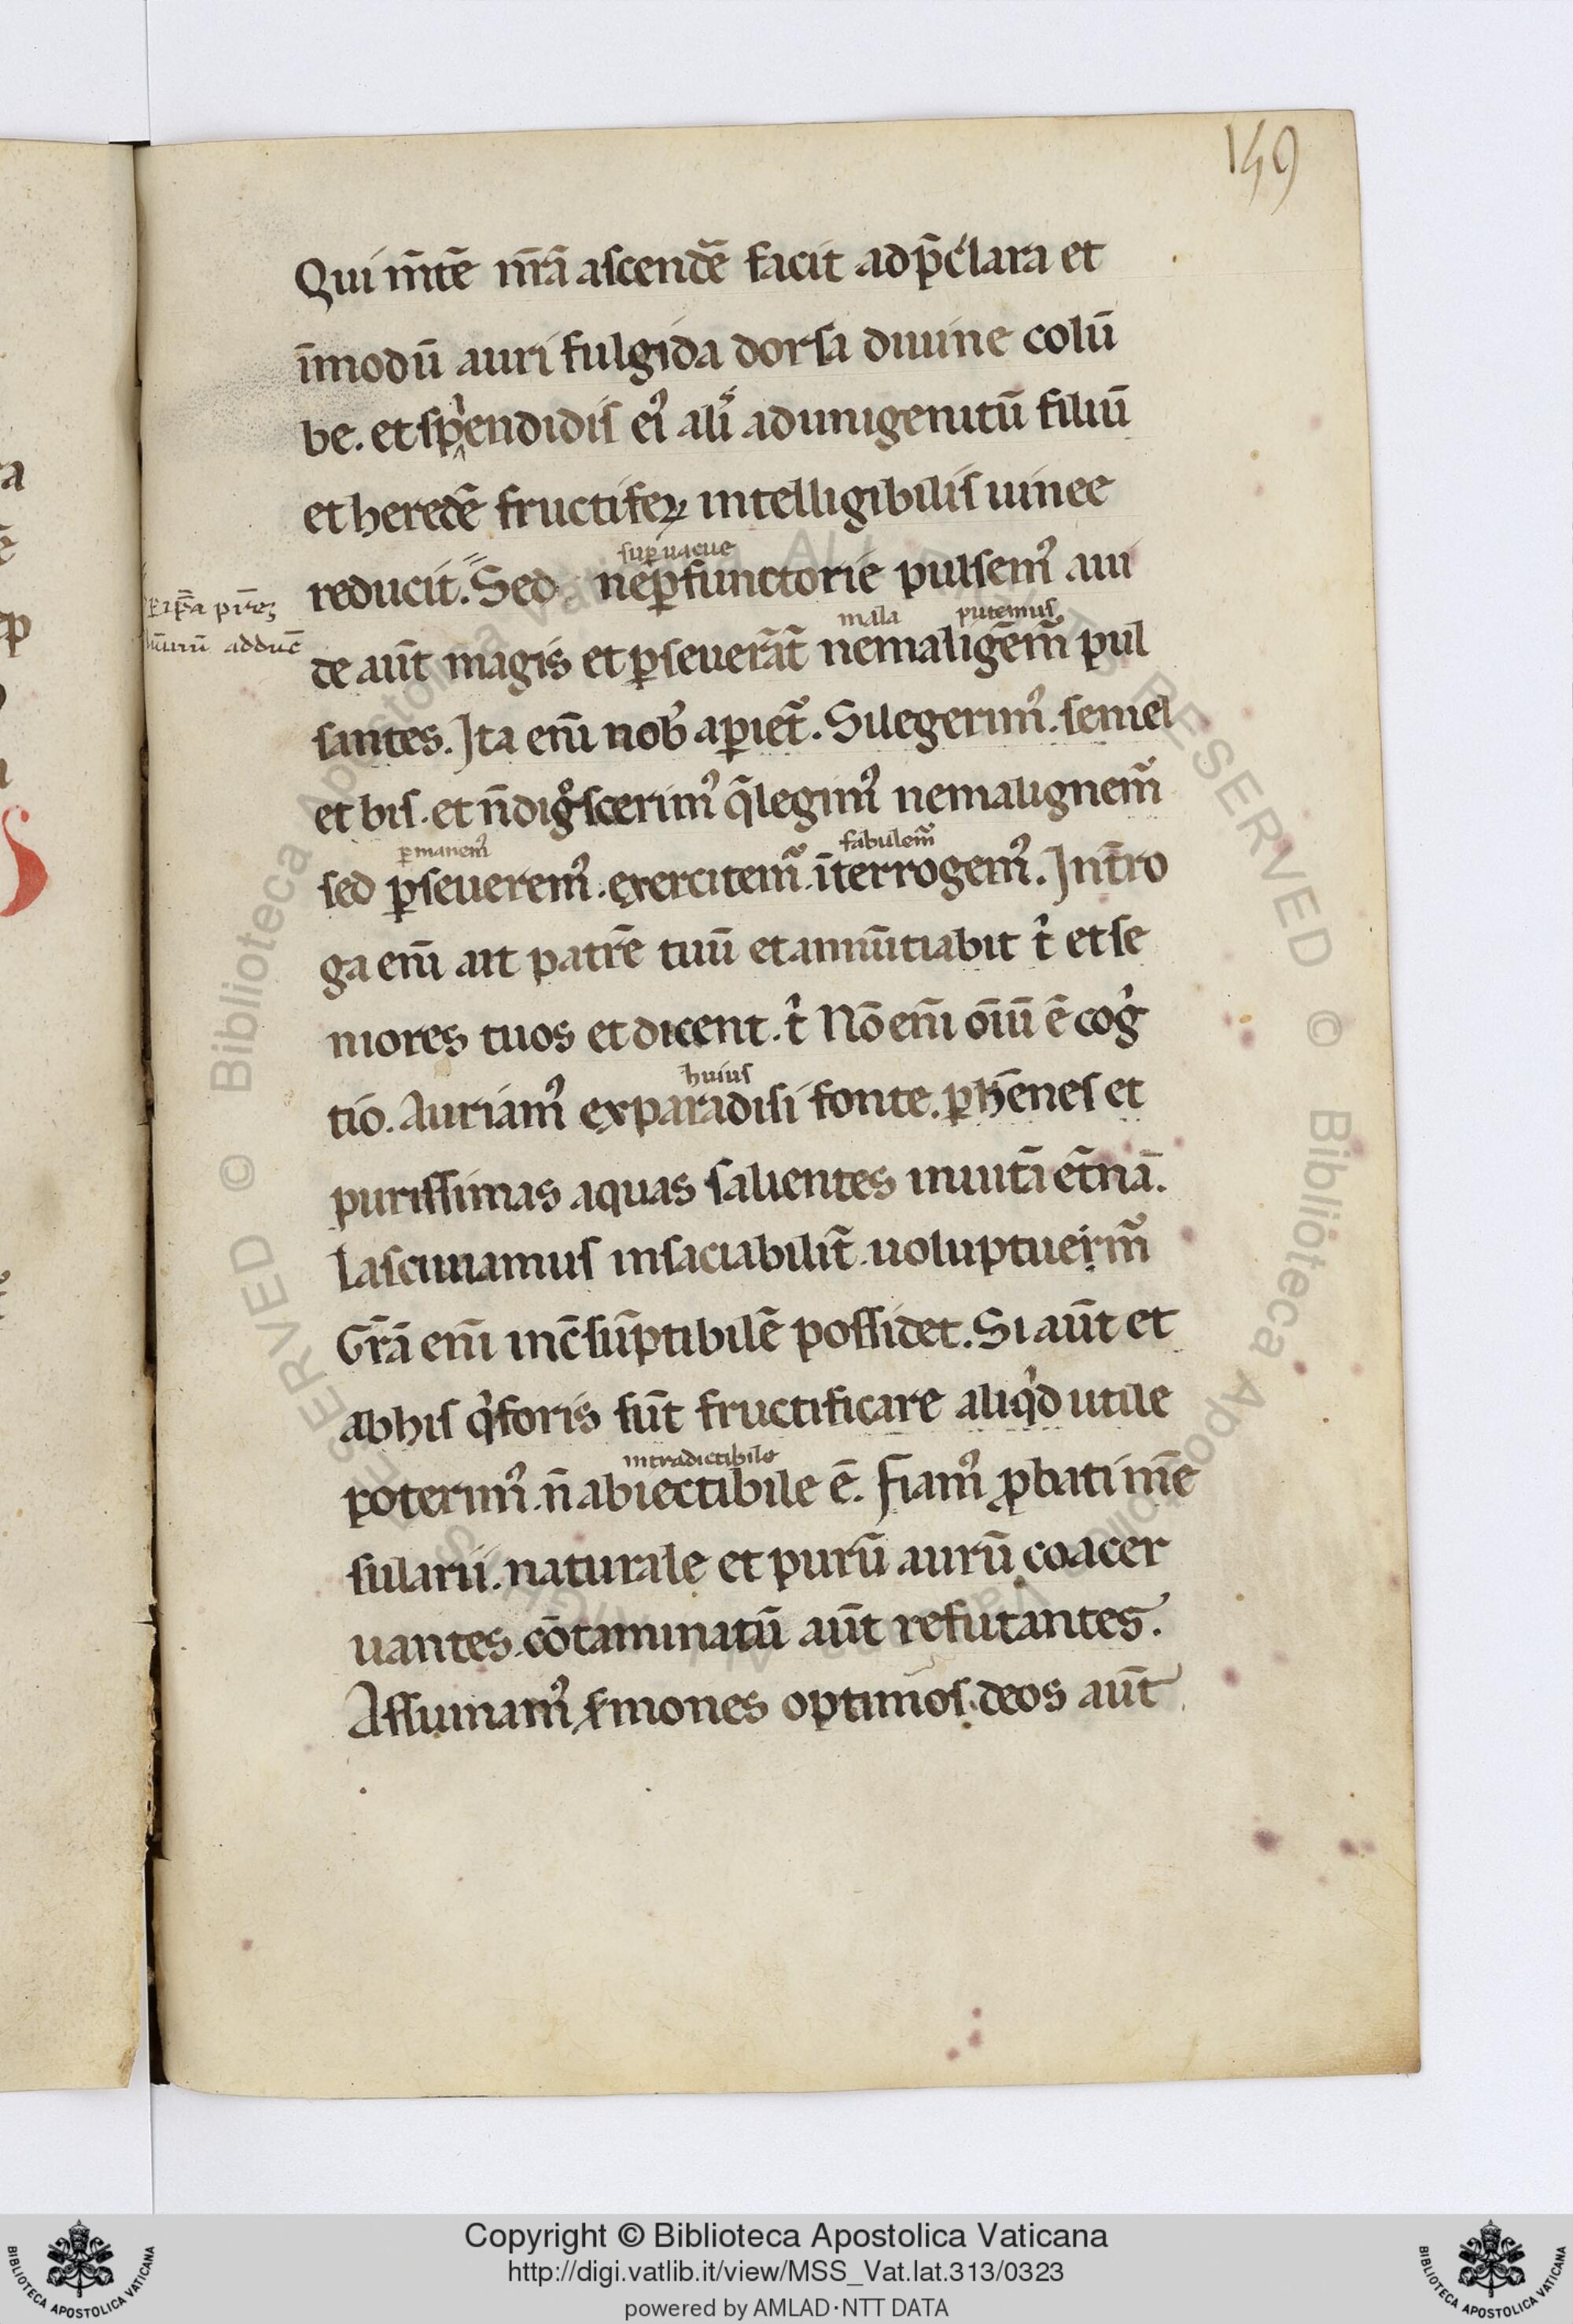 149
Qui m̄tē nr̄ā ascendē facit ad p̄clara et
īmodū auri fulgida dorsa diuine colū
be. et spendidis ei᾿ ali᾿ ad unigenitū filiū
et heredē fructifeꝝ intelligibilis uinee
reducit. Sed ne ꝑfunctorie pulsem᾿ aui
suꝑuacue
de aūt magis et ꝑseuerāt̄ ne maligēm̄ pul
mala putemus
santes. Ita eni᷃ nob᾿ apiet᷃. Si legerim᾿ semel
et bis. et n̄ digͦscerim᾿ q̄ legim᾿ ne malignem᷃
sed ꝑseuerem᾿. exercitem᷃. īterrogem᾿. Int̄ro
ꝑmanem᾿ fabulem᷃
ga eni᷃ ait patrē tuū et annūtiabit t̉ et se
niores tuos et dicent. t̉ Nō eni᷃ oīū ē cog̉
tio. Auriam᾿ ex paradisi fonte. ꝑhēnes et
huius
purissimas aquas salientes in uitā et̄nā.
Lasciuiamus insaciabilit̄. uoluptuem᷃
Gr̄ā eni᷃ inc̄sūptibilē possidet. Si aūt et
ab his q̉ foris sūt fructificare aliq̉d utile
poterim᾿. n̄ abiectibile ē. Fiam᾿ ꝓbati mē
intradictibile
sularii. naturale et purū aurū coacer
uantes. cōtaminatū aūt refutantes.
Assumam᾿ s̄mones optimos. deos aūt
adducē
Copyright © Biblioteca Apostolica Vaticana
http://digi.vatlib.it/view/MSS_Vat.lat.313/0323
powered by AMLAD·NTT DATA
BIBLIOTECA APOSTOLICA VATICANA
BIBLIOTECA APOSTOLICA VATICANA